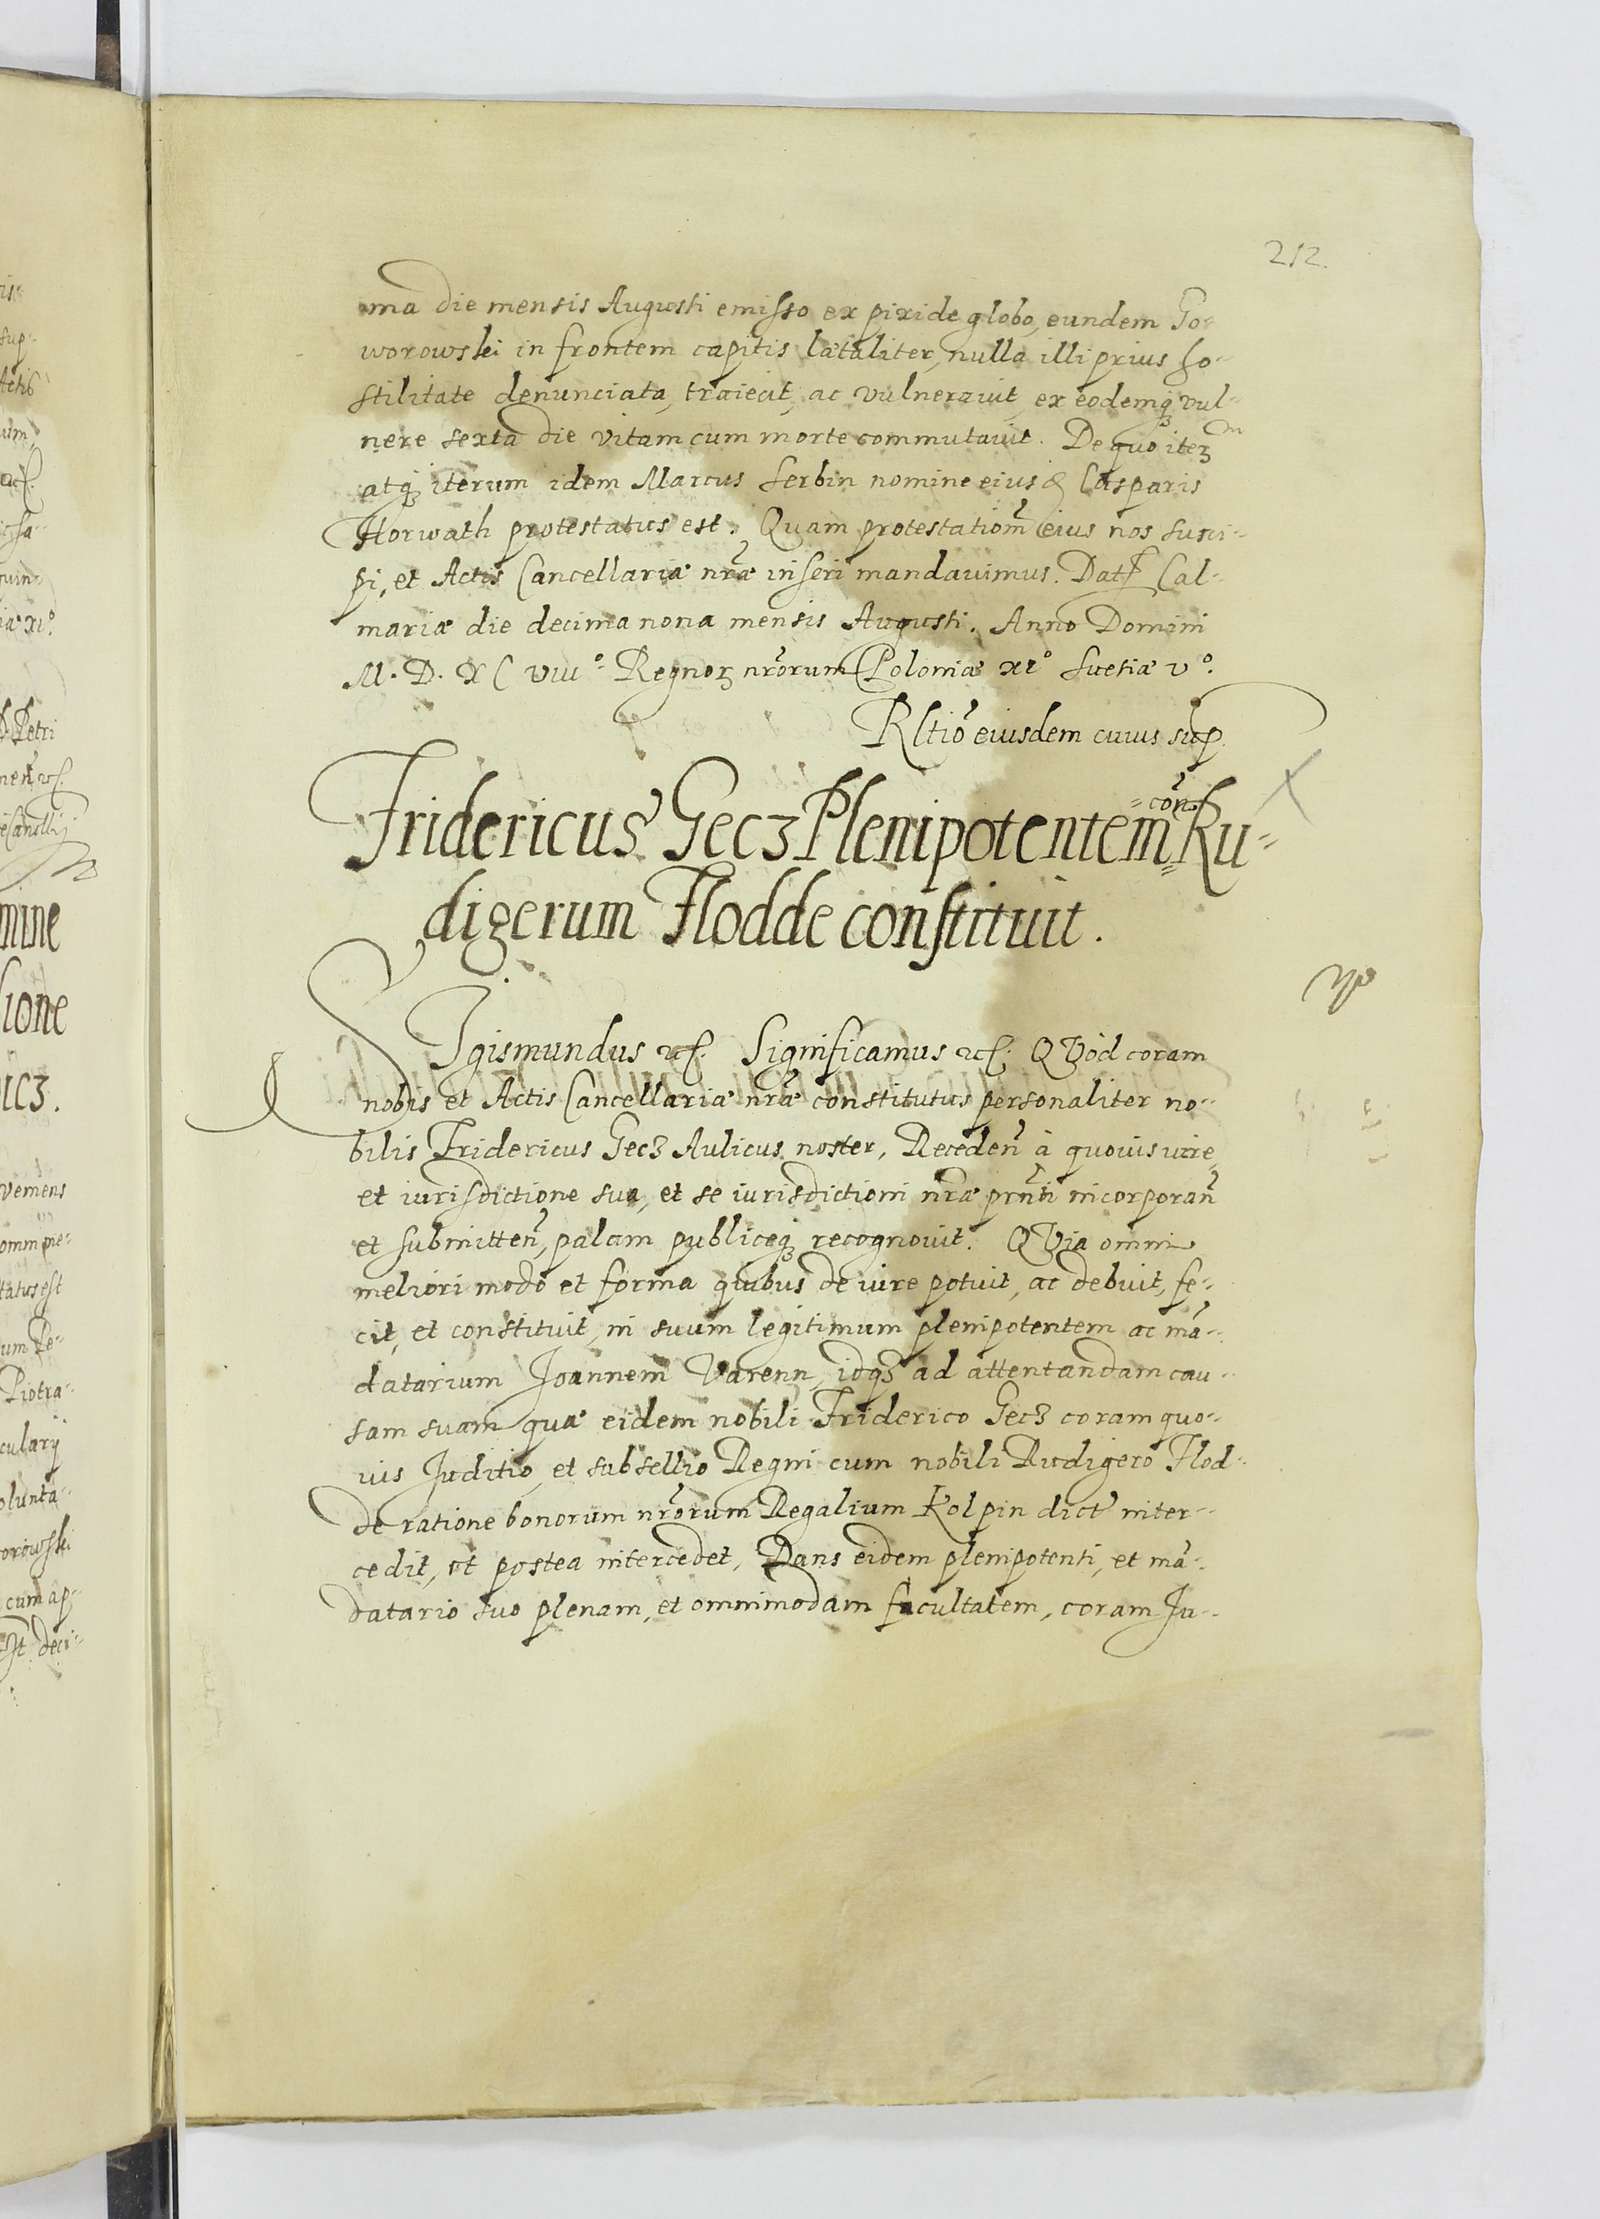 212.
ma die mensis Augusti emisso ex pixide globo, eundem Go-
worowski in frontem capitis lætaliter, nulla illi prius ho-
stilitate denunciata, traiecit, ac vulneravit, ex eodemqꝫ vul-
nere sexta die vitam cum morte commutavit. De quo iteꝝ
atqꝫ iterum idem Marcus Serbin nomine eius G Casparis
Horwath protestatus est. Quam protestationẽ eius nos susci-
pi, et Actis Cancellariæ nr̃æ inseri mandavimus. Dat Cal-
mariæ die decima nona mensis Augusti. Anno Domini
M. D. XC viii.º Regnoꝝ nr̃orum Poloniæ xiº Suetiæ vº.
Rltio eiusdem cuius sup.
Fridericus Gecz Plenipotentem =con̄= Ru-
digerum Flodde constituit.
SIgismundus etc. Significamus etc. QVòd coram
nobis et Actis Cancellariæ nr̃æ constitutus personaliter no-
bilis Fridericus Gecz Aulicus noster, Receden̄ à quovis iure
et iurisdictione sua, et se iurisdictioni nr̃æ prn̄ti incorporan̄
et submitten̄, palam publiceqꝫ recognovit. QVia omni
meliori modo et forma quibus de iure potuit, ac debuit, fe-
cit, et constituit, in suum legitimum plenipotentem ac mã-
datarium Joannem Varenn, idqꝫ ad attentandam cau-
sam suam quæ eidem nobili Friderico Gecz coram quo-
vis Juditio, et subsellio Regni cum nobili Rudigero Flod-
de ratione bonorum nr̃orum Regalium Kolpin dict inter-
cedit, et postea intercedet, Dans eidem plenipotenti, et mã-
datario suo plenam, et omnimodam facultatem, coram Ju-